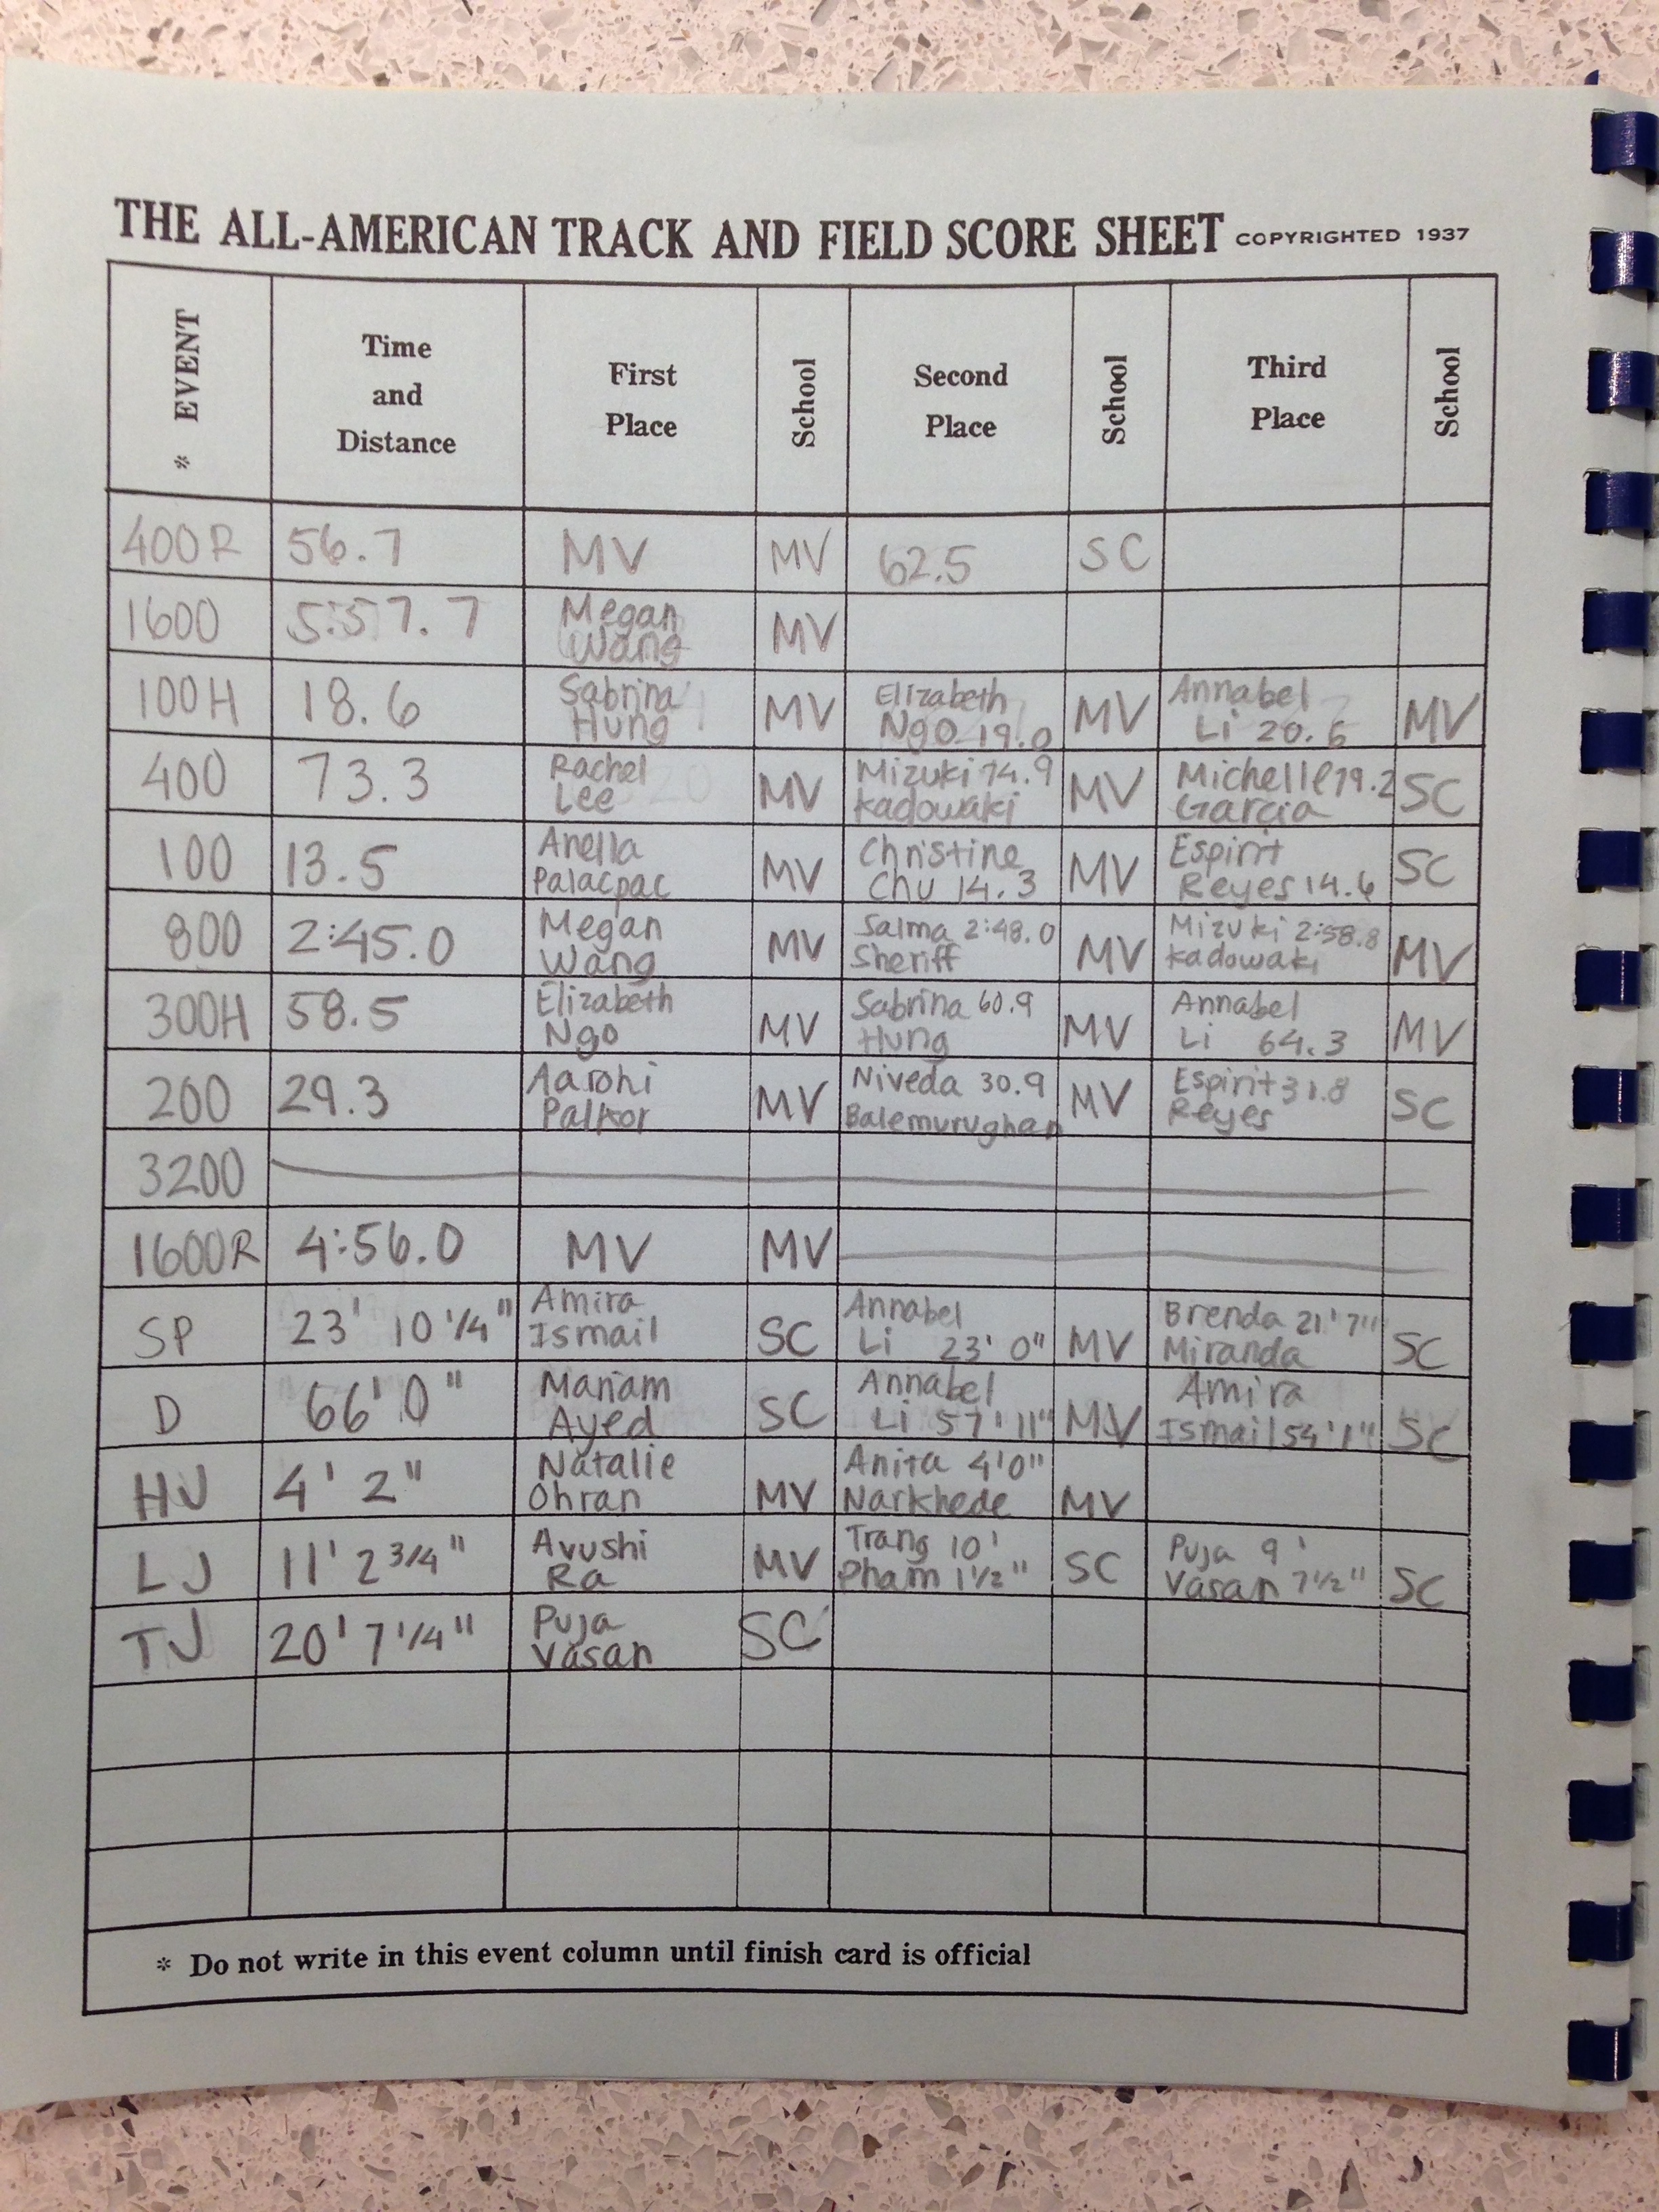 THE ALL-AMERICAN TRACK AND FIELD SCORE SHEET COPYRIGHTED 1937
* EVENT
Time
and
Distance
First
Place
School
Second
Place
School
Third
Place
School
400R 56.7 MV MV 62.5 SC
1600 5:57.7 Megan
Wang MV
100H 18.6 Sabrina
Hung MV Elizabeth
Ngo 19.0 MV Annabel
Li 20.6 MV
400 73.3 Rachel
Lee MV Mizuki 74.9
Kadowaki MV Michelle 79.2
Garcia SC
100 13.5 Anella
Palacpac MV Christine
Chu 14.3 MV Espirit
Reyes 14.6 SC
800 2:45.0 Megan
Wang MV Salma 2:48.0
Sheriff MV Mizuki 2:58.8
Kadowaki MV
300H 58.5 Elizabeth
Ngo MV Sabrina 60.9
Hung MV Annabel
Li 64.3 MV
200 29.3 Aarohi
Palkor MV Niveda 30.9
Balemurughan MV Espirit 31.8
Reyes SC
3200
1600R 4:56.0 MV MV
SP 23' 10 1/4" Amira
Ismail SC Annabel
Li 23' 0" MV Brenda 21' 7"
Miranda SC
D 66' 0" Mariam
Ayed SC Annabel
Li 57' 11" MV Amira
Ismail 54' 1" SC
HJ 4' 2" Natalie
Ohran MV Anita 4'0"
Narkhede MV
LJ 11' 2 3/4" Avushi
Ra MV Trang 10'
Pham 1 1/2" SC Puja 9'
Vasan 7 1/2" SC
TJ 20' 7 1/4" Puja
Vasan SC
* Do not write in this event column until finish card is official